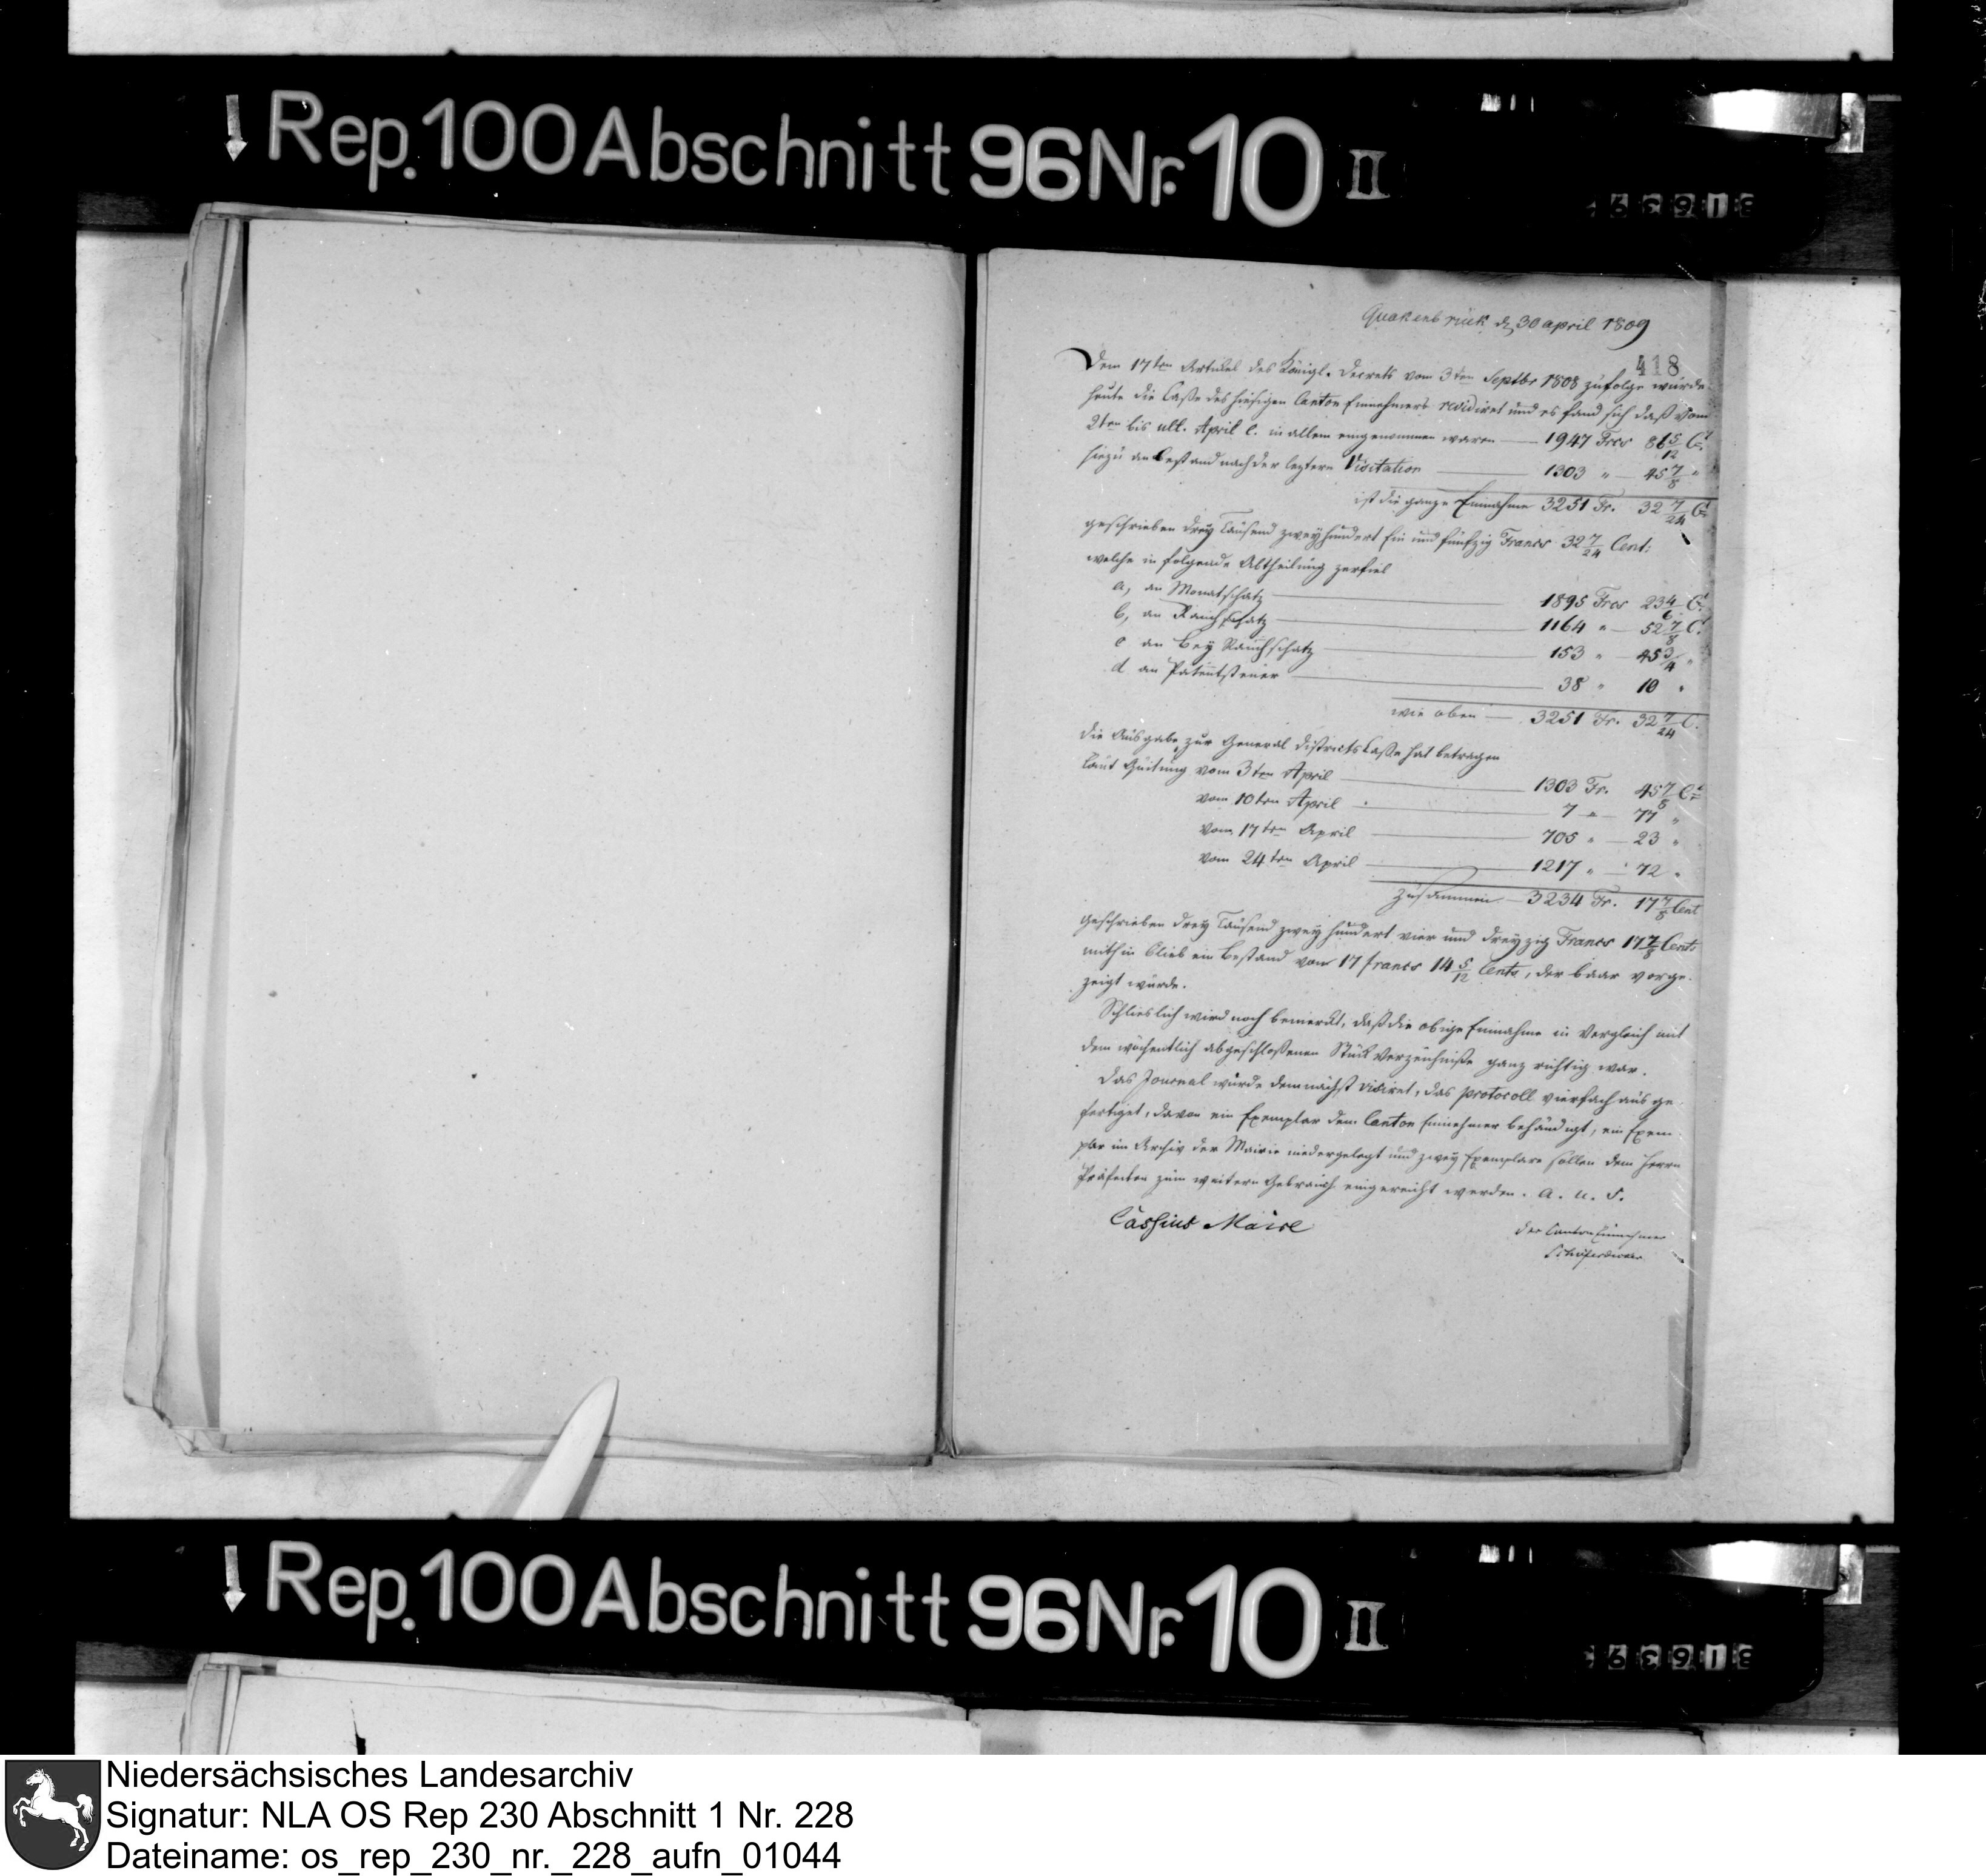 Rep. 100 Abschnitt 96 Nr. 10 II
81639
Quakenbrück d. 30 april 1809
418
Dem 17ten Artikel des Königl. Decrets vom 3ten Septbr 1808 zufolge wurde
heute die Casse des hiesigen Canton Einnehmers revidiret und es fand sich daß vom
2ten bis ult. April c. in allem eingenommen waren — 1947 Frcs 86 5/12 C.
hiezu der Bestand nach der leztern Visitation — 1303 " — 45 7/8 "
ist die ganze Einnahme 3251 Fr. 32 7/24 C.
geschrieben drey Tausend zweyhundert Ein und funfzig Francs 32 7/24 Cent:
welche in folgende Abtheilung zerfiel
a, an Monatschatz — 1895 Frcs 23 4/6 C.
b, an Rauchschatz — 1164 " — 52 7/8 C.
c an Bey Rauchschatz — 153 " — 45 3/4 "
d an Patentsteuer — 38 " 10 "
wie oben — 3251 Fr. 32 7/24 C.
die Ausgabe zur General Districts Casse hat betragen
laut Quitung vom 3ten April — 1303 Fr. 45 7/8 C.
vom 10ten April — 7 " — 77 "
vom 17ten April — 705 " — 23 "
vom 24ten April — 1217 " — 72 "
zusammen — 3234 Fr. 17 7/8 Cent
geschrieben drey Tausend zwey hundert vier und dreyzig Francs 17 7/8 Cent:
mithin blieb ein Bestand von 17 francs 14 5/12 Cents, der baar vorge-
zeigt wurde.
Schlieslich wird noch bemerkt, daß die obige Einnahme in Vergleich mit
dem wöchentlich abgeschlossenen Stück Verzeichnisse ganz richtig war.
Das Journal wurde demnächst visiret, das protocoll vierfach ausge-
fertiget, davon ein Exemplar dem Canton Einnehmer behändigt, ein Exem-
plar im Archiv der Mairie niedergelegt und zwey Exemplare sollen dem Herrn
Präfecten zum weitern Gebrauch eingereicht werden. a. u. s.
Cassius Maire
der Canton Einnehmer
Rep. 100 Abschnitt 96 Nr. 10 II
81639
Niedersächsisches Landesarchiv
Signatur: NLA OS Rep 230 Abschnitt 1 Nr. 228
Dateiname: os_rep_230_nr._228_aufn_01044